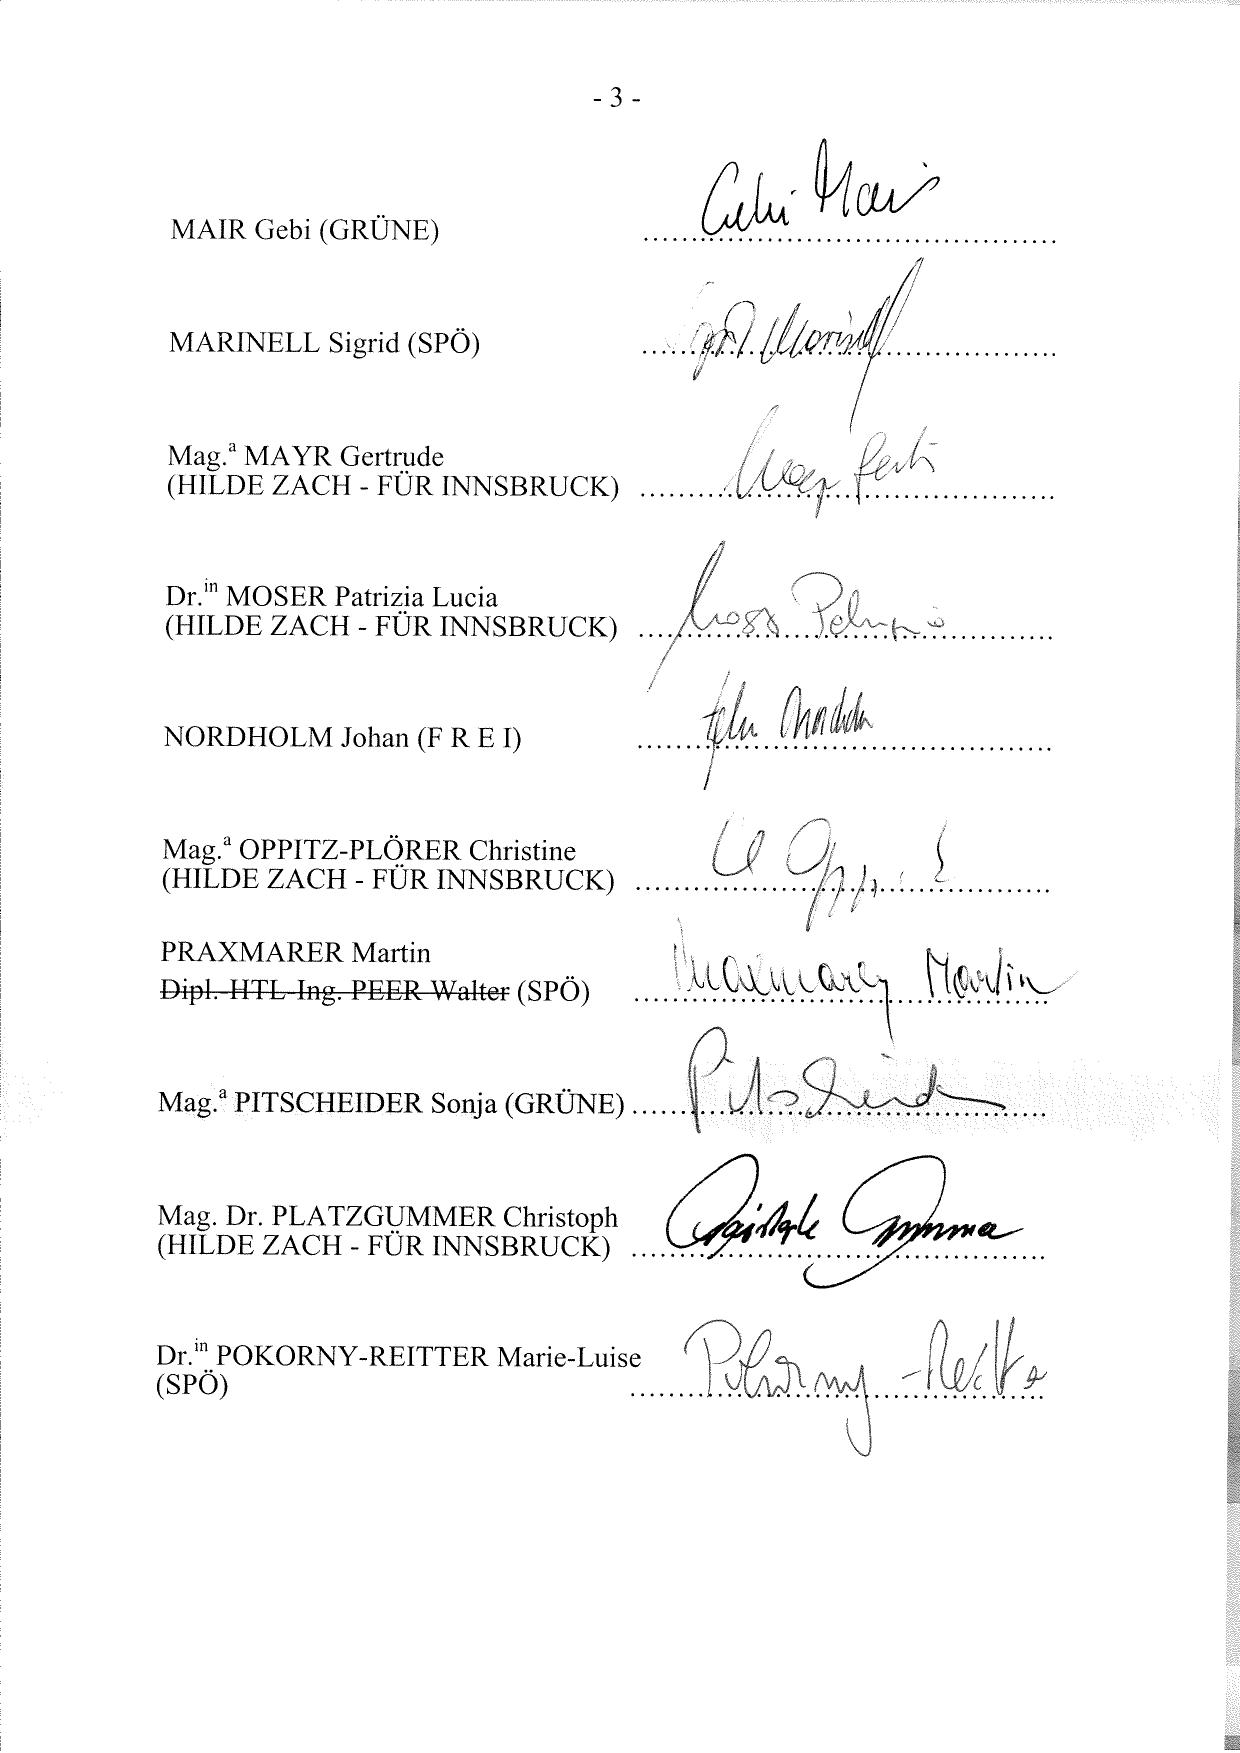 - 3 -
MAIR Gebi (GRÜNE) Gebi Mair
MARINELL Sigrid (SPÖ) Marinell
Mag.ª MAYR Gertrude
(HILDE ZACH - FÜR INNSBRUCK) Mayr Gerti
Dr.in MOSER Patrizia Lucia
(HILDE ZACH - FÜR INNSBRUCK) Moser
NORDHOLM Johan (F R E I)
Mag.ª OPPITZ-PLÖRER Christine
(HILDE ZACH - FÜR INNSBRUCK)
PRAXMARER Martin
Dipl.-HTL-Ing. PEER Walter (SPÖ) Praxmarer Martin
Mag.ª PITSCHEIDER Sonja (GRÜNE) Pitscheider
Mag. Dr. PLATZGUMMER Christoph
(HILDE ZACH - FÜR INNSBRUCK) Christoph
Dr.in POKORNY-REITTER Marie-Luise
(SPÖ) Pokorny-Reitter